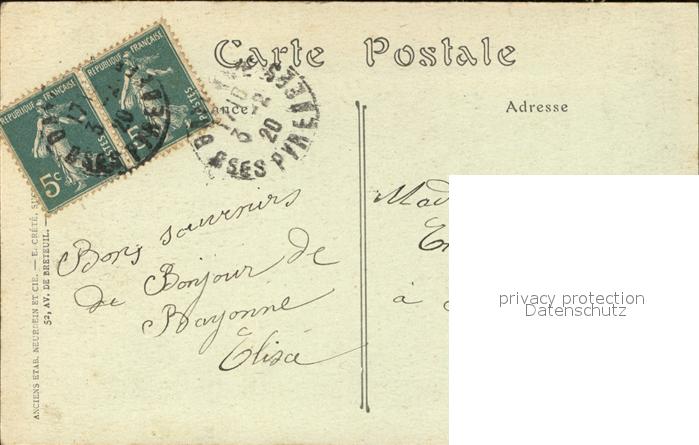 Carte Postale
Adresse
RÉPUBLIQUE FRANÇAISE
RÉPUBLIQUE FRANÇAISE
POSTES
5c
BSES PYRENEES
20
Bons souvenirs
de Bonjour de
Bayonne
Élisa
Mad
à
ANCIENS ETAB. NEURDEIN ET CIE. — E. CRÉTÉ, SUC
52, AV. DE BRETEUIL. —
privacy protection
Datenschutz